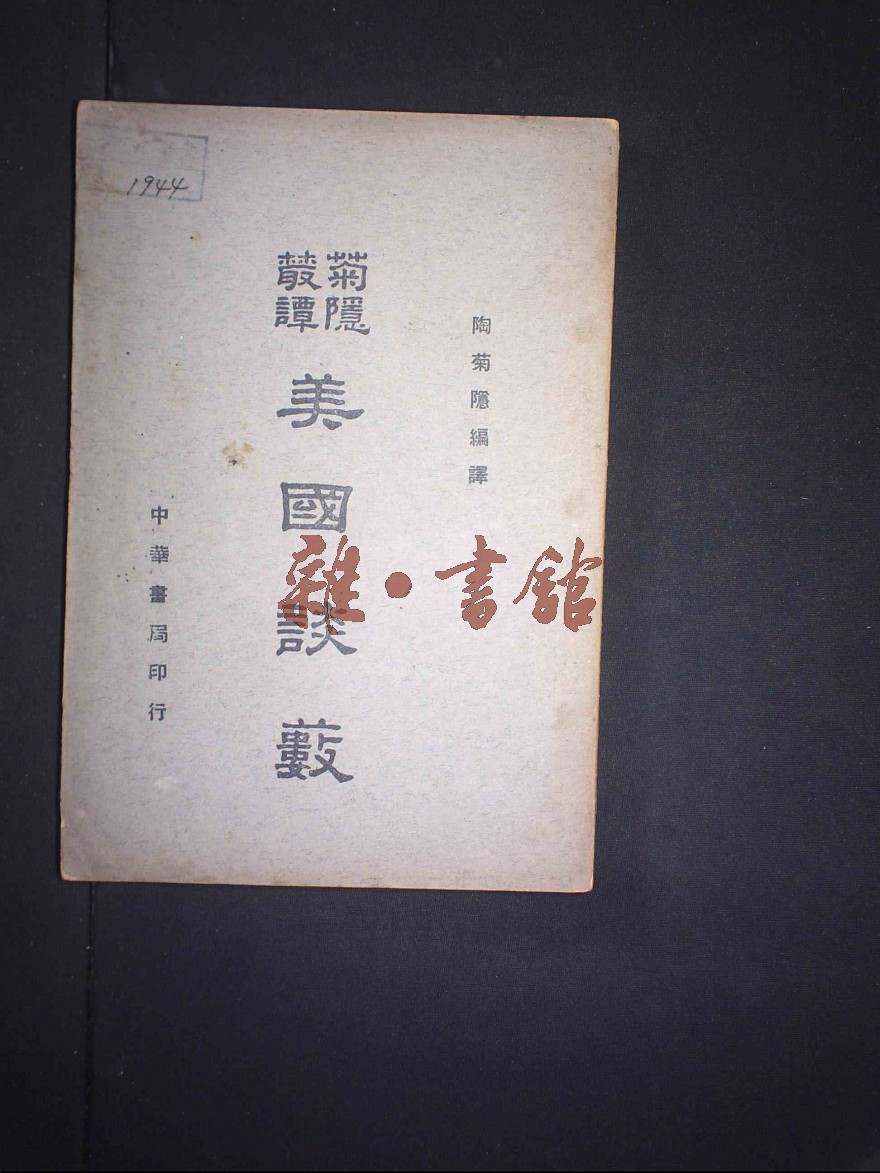 1944
陶菊隱編譯
菊隱
叢譚
美國談藪
中華書局印行
雜·書館